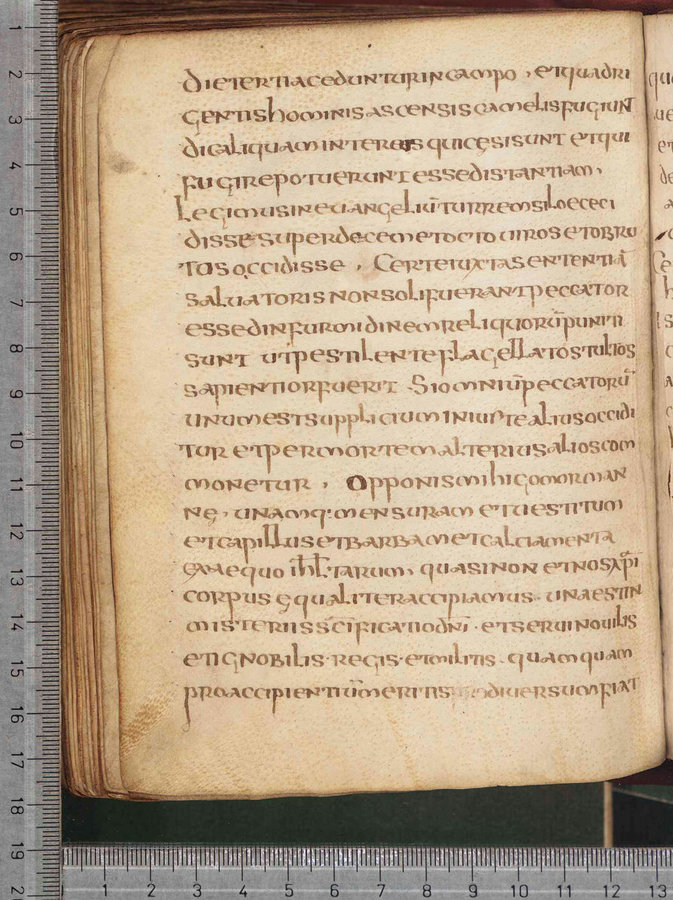 dietertiaceduntur in campo, et quadri
gentis hominis ascensis camelis fugiunt
di caliquam inter eos qui cęsi sunt et qui
fugire potuerunt esse distantiam,
Legimus in euangeliū turrem siloe ceci
disse super decem et octo uiros et obru
tos occidisse, Certe iuxta sententiā
saluatoris non soli fuerant peccator
essed in furmidinem reliquorū puniti
sunt ut pestilente flagellato stultos
sapientior fuerit. Si omniū peccatorū
unum est supplicium iniuste alius occidi
tur et per mortem alterius alios com
monetur, Opponis mihi gomor man
nę, unamq. mensuram et uestitum
et capillus et barbam et calciamenta
exaequo ihl. tarum, quasi non et nos xpi
corpus ęqualiter accipiamus. una est in
misteriis scificatio dni. et serui nouilis
et ignobilis. regis. et militis. quamquam
pro accipientiū meritis diuersum fiat
qu